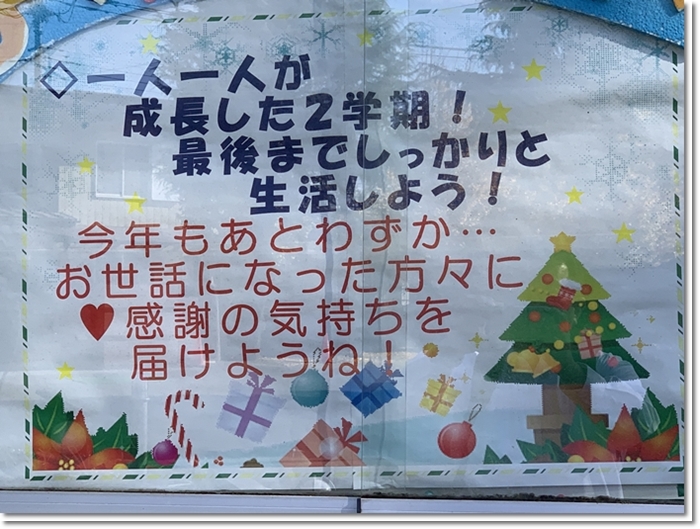 ◇一人一人が
成長した2学期！
最後までしっかりと
生活しよう！
今年もあとわずか…
お世話になった方々に
♥感謝の気持ちを
届けようね！